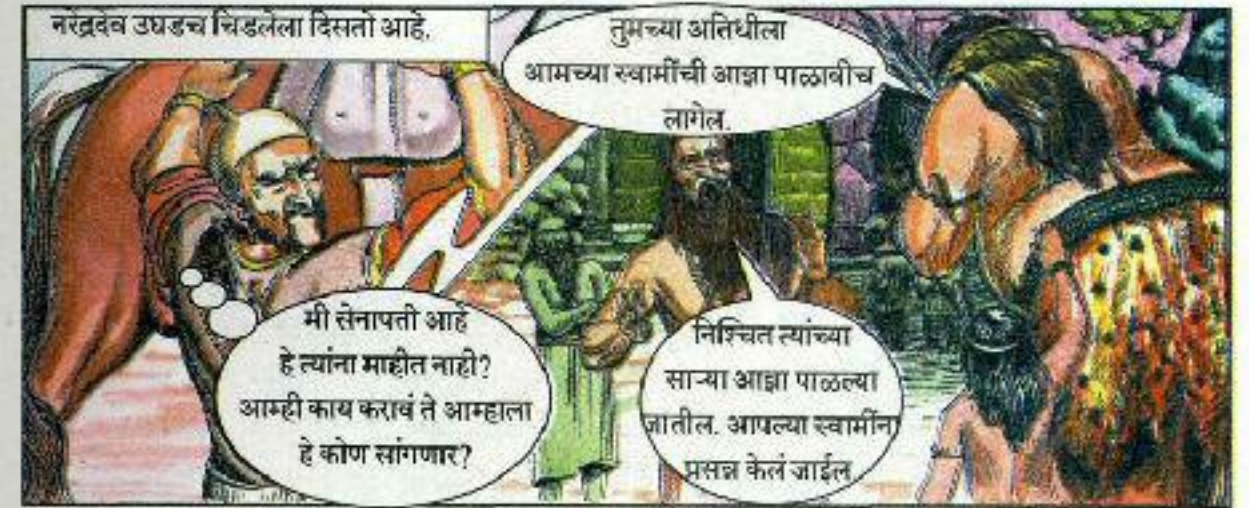 नरेंद्रदेव उघडच चिडलेला दिसतो आहे.
तुमच्या अतिथीला
आमच्या स्वामींची आज्ञा पाळावीच
लागेल.
मी सेनापती आहे
हे त्यांना माहीत नाही?
आम्ही काय करावं ते आम्हाला
हे कोण सांगणार?
निश्चित त्यांच्या
साऱ्या आज्ञा पाळल्या
जातील. आपल्या स्वामींना
प्रसन्न केलं जाईल